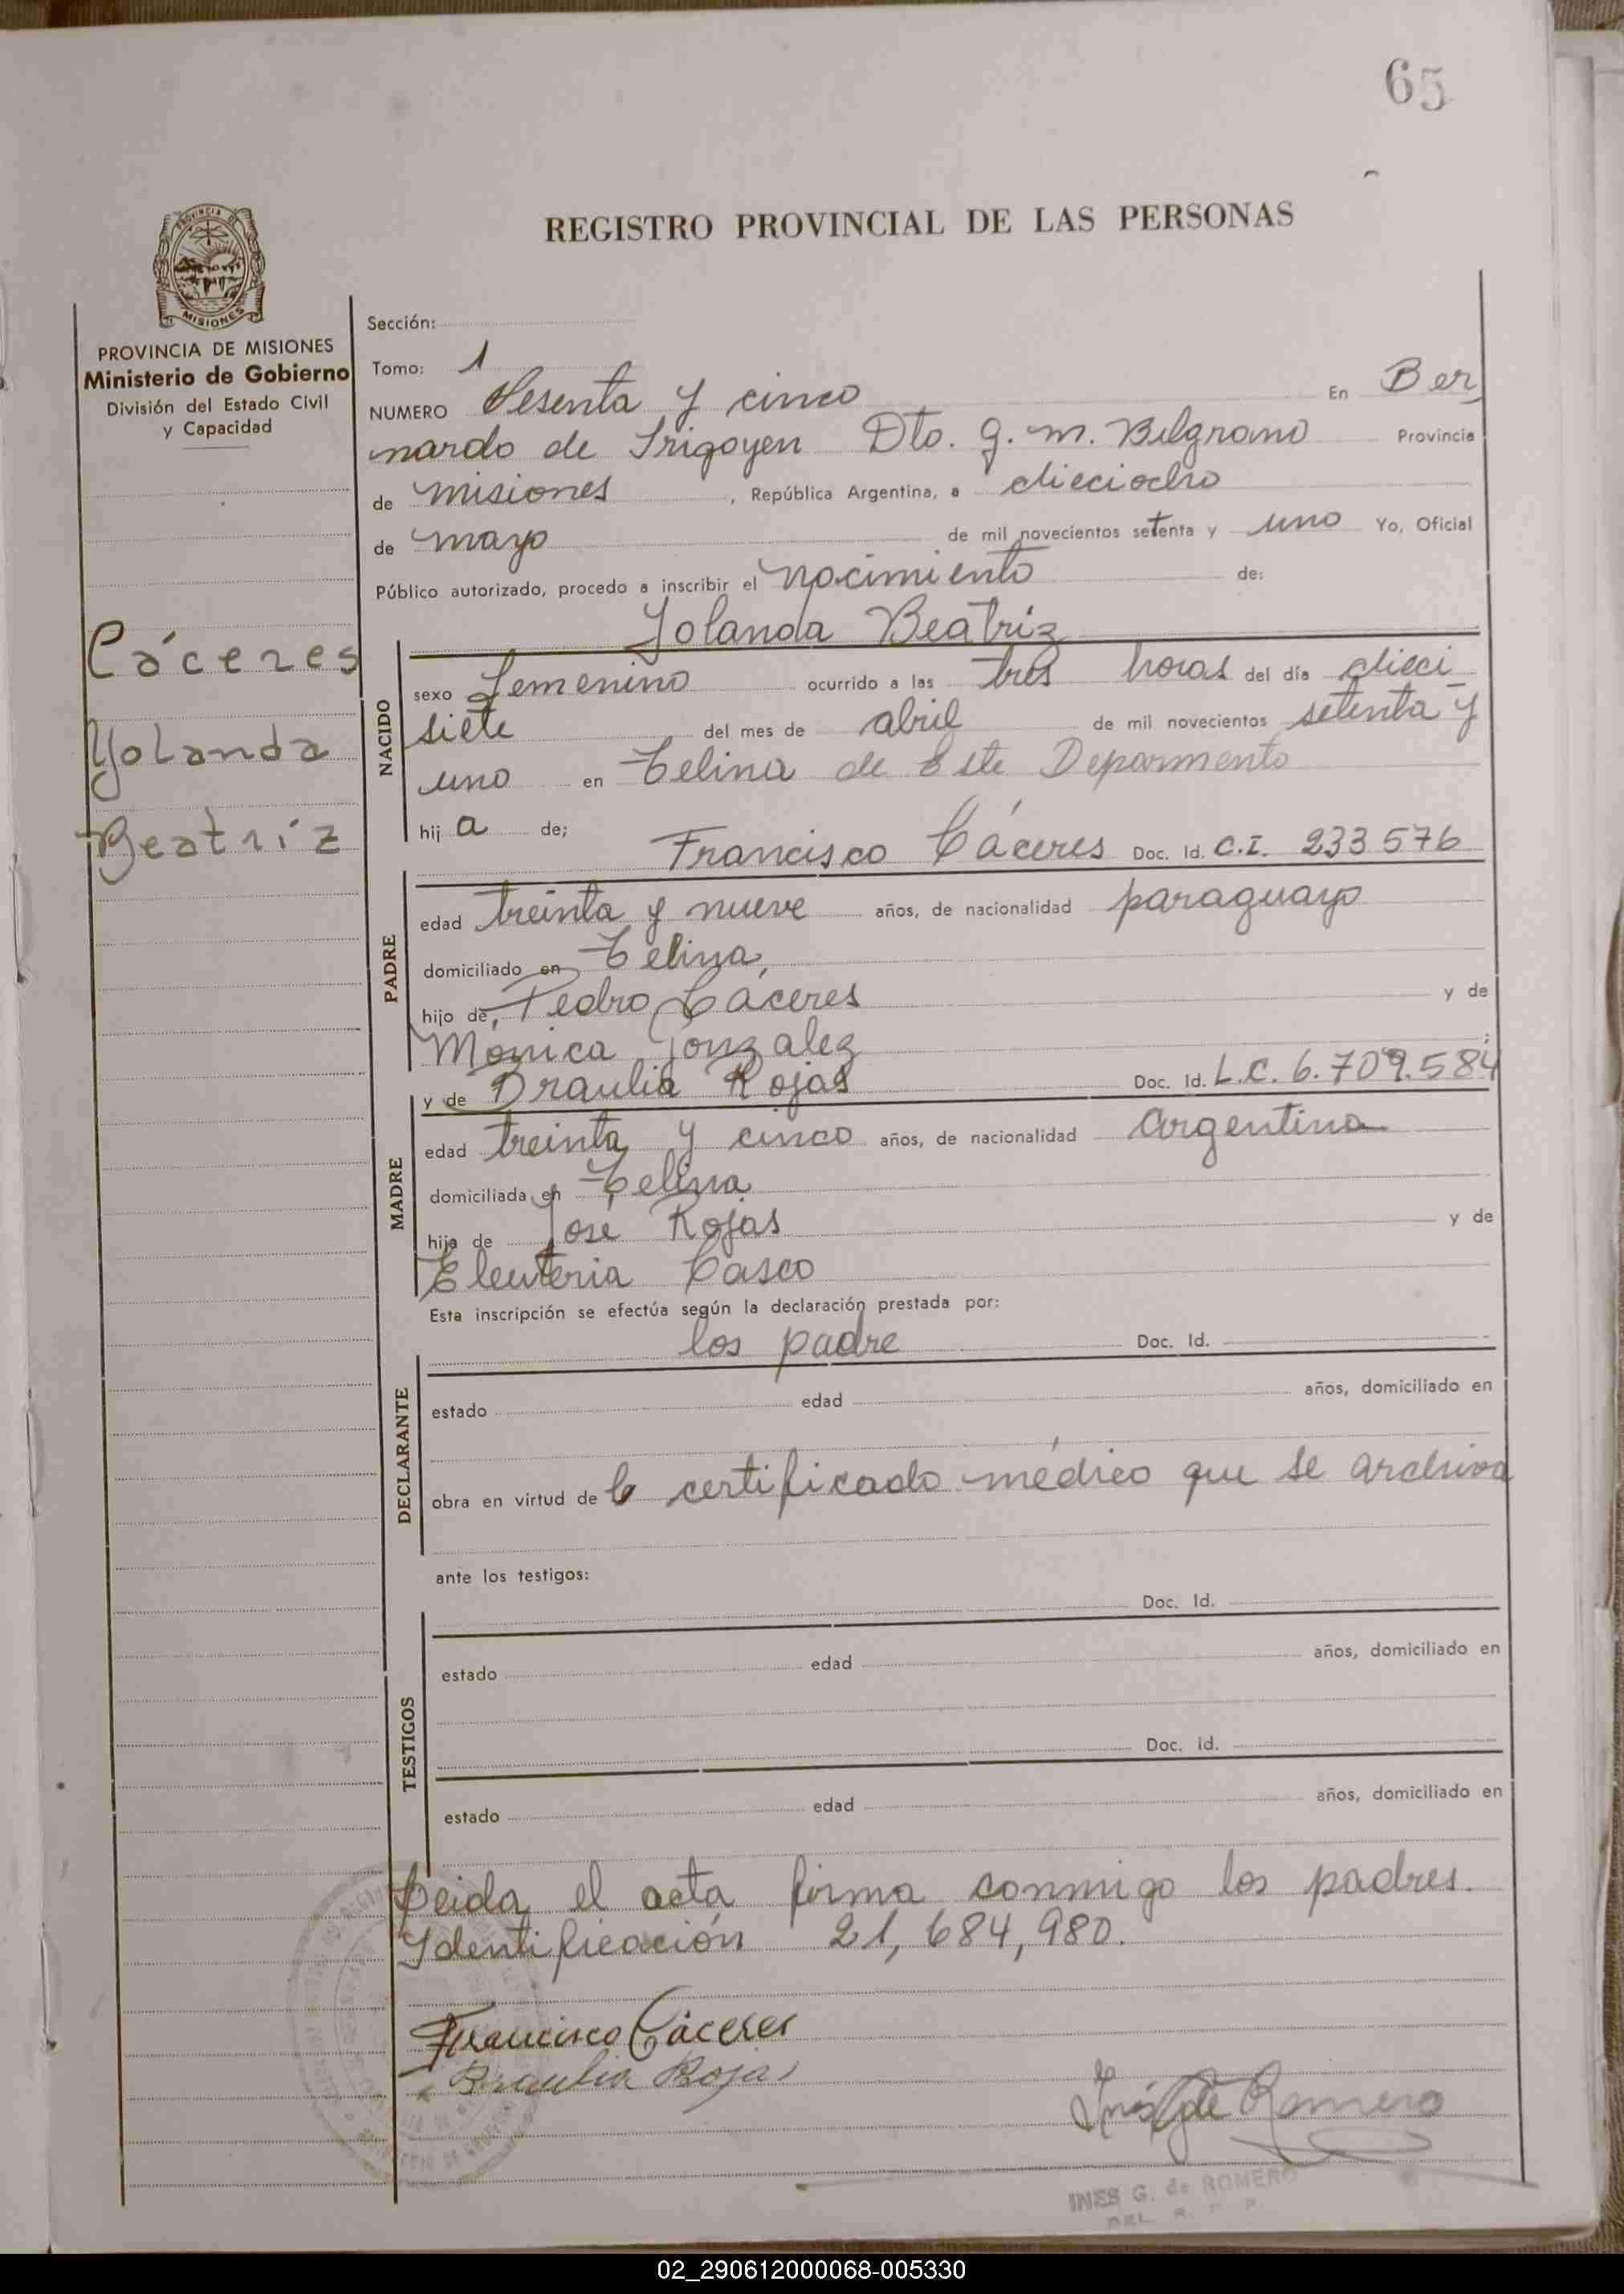 65
REGISTRO PROVINCIAL DE LAS PERSONAS
MISIONES
PROVINCIA DE MISIONES
Ministerio de Gobierno
División del Estado Civil
y Capacidad
Cáceres
Yolanda
Beatriz
Sección:
Tomo: 1
NUMERO Sesenta y cinco En Ber
nardo de Irigoyen Dto. G. M. Belgrano Provincia
de Misiones, República Argentina, a dieciocho
de mayo de mil novecientos setenta y uno Yo, Oficial
Público autorizado, procedo a inscribir el nacimiento de:
Yolanda Beatriz
NACIDO
sexo Femenino ocurrido a las tres horas del día dieci
siete del mes de abril de mil novecientos setenta y
uno en Celina de Este Deparmento
hij a de; Francisco Cáceres Doc. Id. C.I. 233576
PADRE
edad treinta y nueve años, de nacionalidad paraguayo
domiciliado en Celina,
hijo de, Pedro Cáceres y de
Mónica Gonzalez
y de Braulia Rojas Doc. Id. L.C. 6.709.584
MADRE
edad treinta y cinco años, de nacionalidad argentina
domiciliada en Celina
hija de José Rojas y de
Eleuteria Casco
Esta inscripción se efectúa según la declaración prestada por:
los padre Doc. Id.
DECLARANTE
estado edad años, domiciliado en
obra en virtud de certificado médico que se archiva
ante los testigos:
Doc. Id.
TESTIGOS
estado edad años, domiciliado en
Doc. Id.
estado edad años, domiciliado en
Leida el acta firma conmigo los padres.
Identificación 21,684,980.
Francisco Cáceres
Braulia Rojas
Inés G de Romero
INES G. de ROMERO
DEL. R. P. P.
02_290612000068-005330